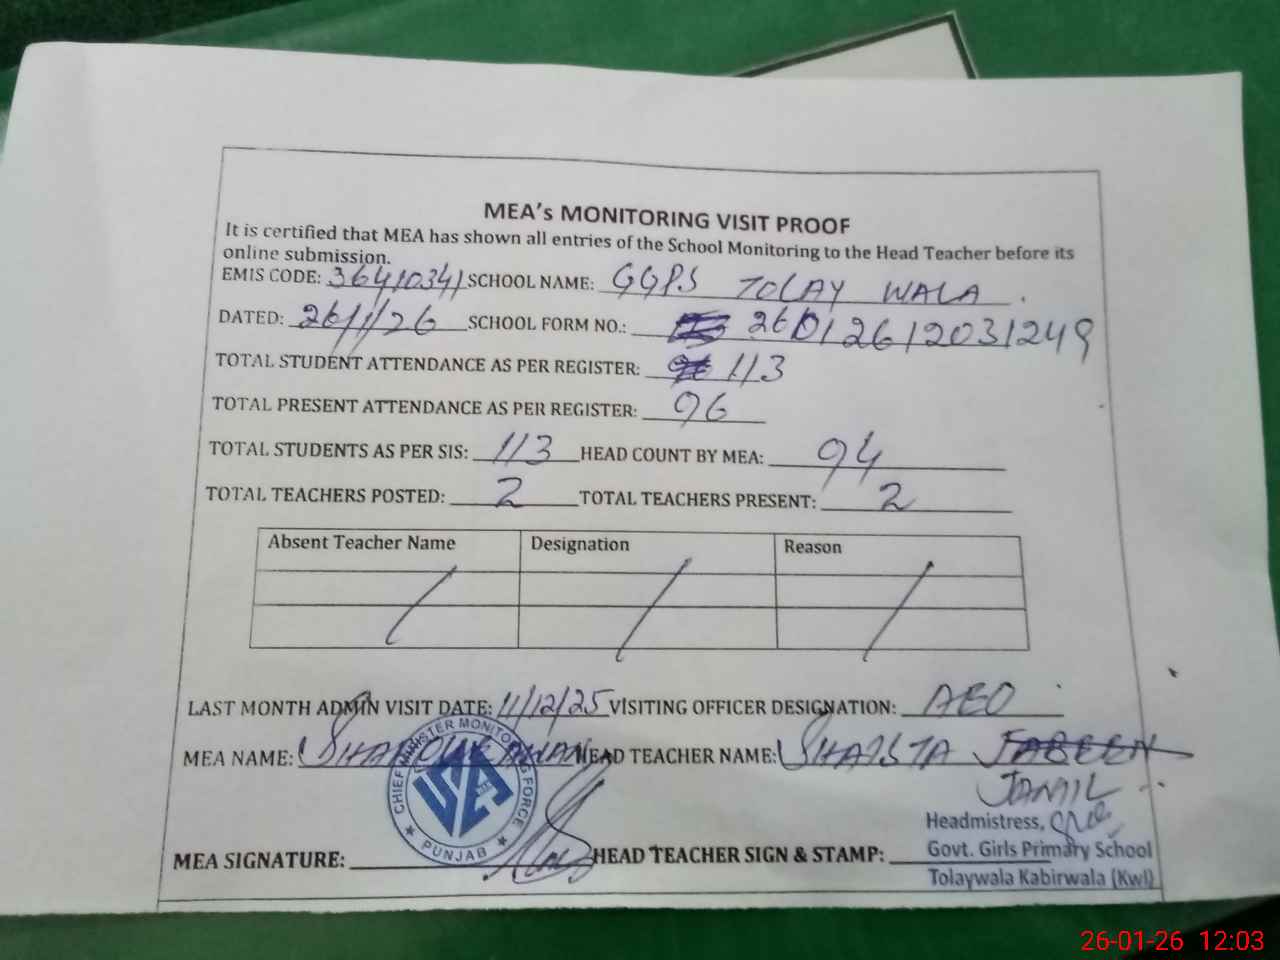 MEA's MONITORING VISIT PROOF
It is certified that MEA has shown all entries of the School Monitoring to the Head Teacher before its
online submission.
EMIS CODE: 36410341 SCHOOL NAME: GGPS TOLAY WALA.
DATED: 26/1/26 SCHOOL FORM NO.: 26012612031249
TOTAL STUDENT ATTENDANCE AS PER REGISTER: 113
TOTAL PRESENT ATTENDANCE AS PER REGISTER: 96
TOTAL STUDENTS AS PER SIS: 113 HEAD COUNT BY MEA: 94
TOTAL TEACHERS POSTED: 2 TOTAL TEACHERS PRESENT: 2
Absent Teacher Name Designation Reason
LAST MONTH ADMIN VISIT DATE: 11/12/25 VISITING OFFICER DESIGNATION: AEO
MEA NAME: HEAD TEACHER NAME: SHAISTA
JAMIL
CHIEF MINISTER MONITORING FORCE PUNJAB
Headmistress,
MEA SIGNATURE: HEAD TEACHER SIGN & STAMP: Govt. Girls Primary School
Tolaywala Kabirwala (Kwl)
26-01-26 12:03